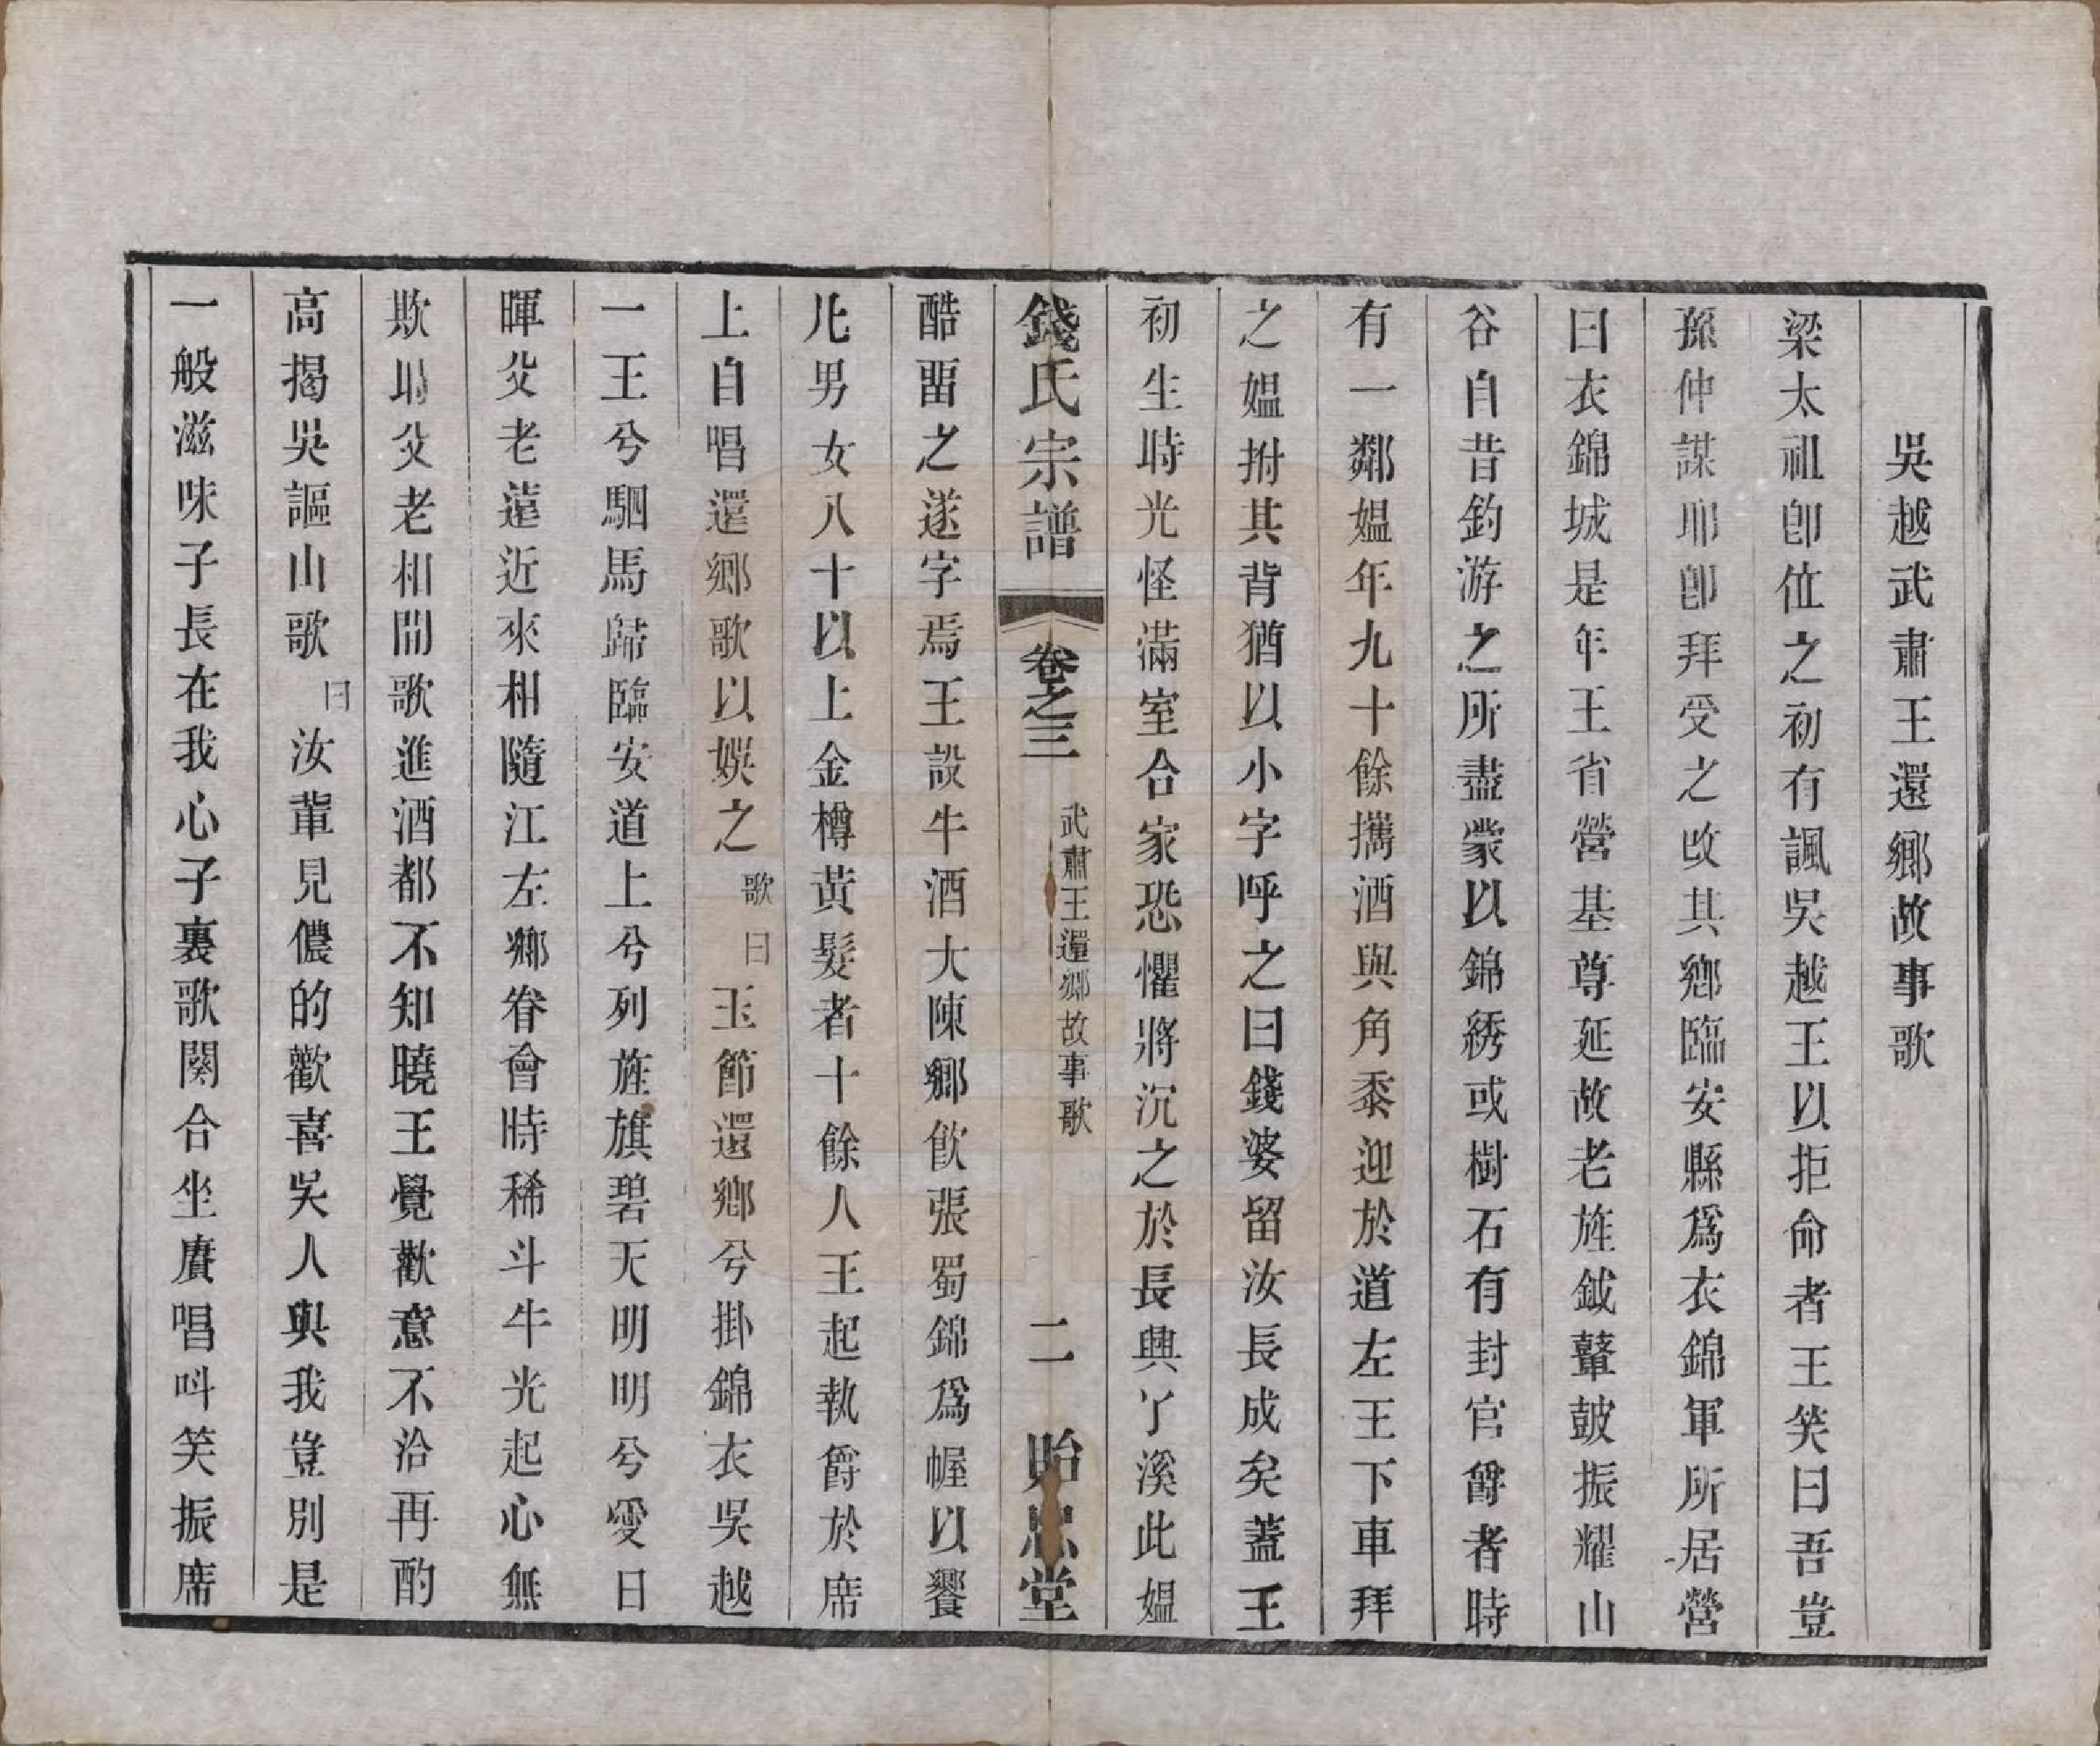 吳越武肅王還鄉故事歌
梁太祖卽位之初有諷吳越王以拒命者王笑曰吾豈
孫仲謀耶卽拜受之改其鄉臨安縣爲衣錦軍所居營
曰衣錦城是年王省營基尊延故老旌鉞鼙鼓振耀山
谷自昔釣游之所盡蒙以錦綉或樹石有封官爵者時
有一鄰媼年九十餘攜酒與角黍迎於道左王下車拜
之媼拊其背猶以小字呼之曰錢婆留汝長成矣蓋王
初生時光怪滿室合家恐懼將沉之於長興丫溪此媼
錢氏宗譜 卷之三 武肅王還鄉故事歌 二 貽思堂
酷畱之遂字焉王設牛酒大陳鄉飲張蜀錦爲幄以饗
凡男女八十以上金樽黃髮者十餘人王起執爵於席
上自唱還鄉歌以娛之歌曰玉節還鄉兮掛錦衣吳越
一王兮駟馬歸臨安道上兮列旌旗碧天明明兮愛日
暉父老遠近來相隨江左鄉眷會時稀斗牛光起心無
欺時父老相聞歌進酒都不知曉王覺歡意不洽再酌
高揭吳謳山歌曰汝輩見儂的歡喜吳人與我豈別是
一般滋味子長在我心子裏歌闋合坐賡唱呌笑振席